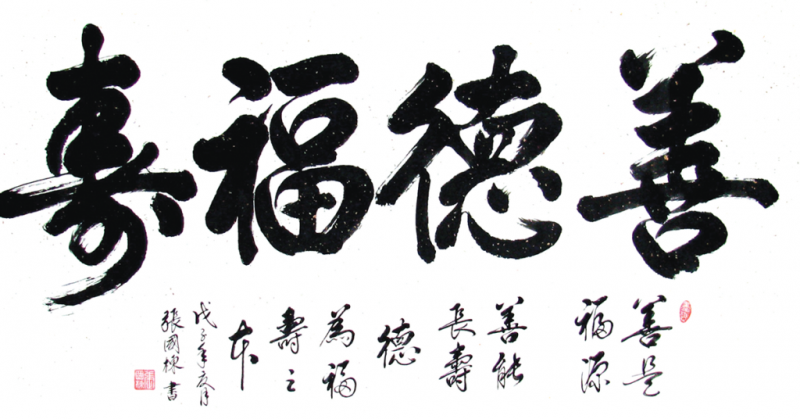 善德福寿
善是
福源
善能
長壽
德
為福
壽之
本
戊子年夏月
張國棟書